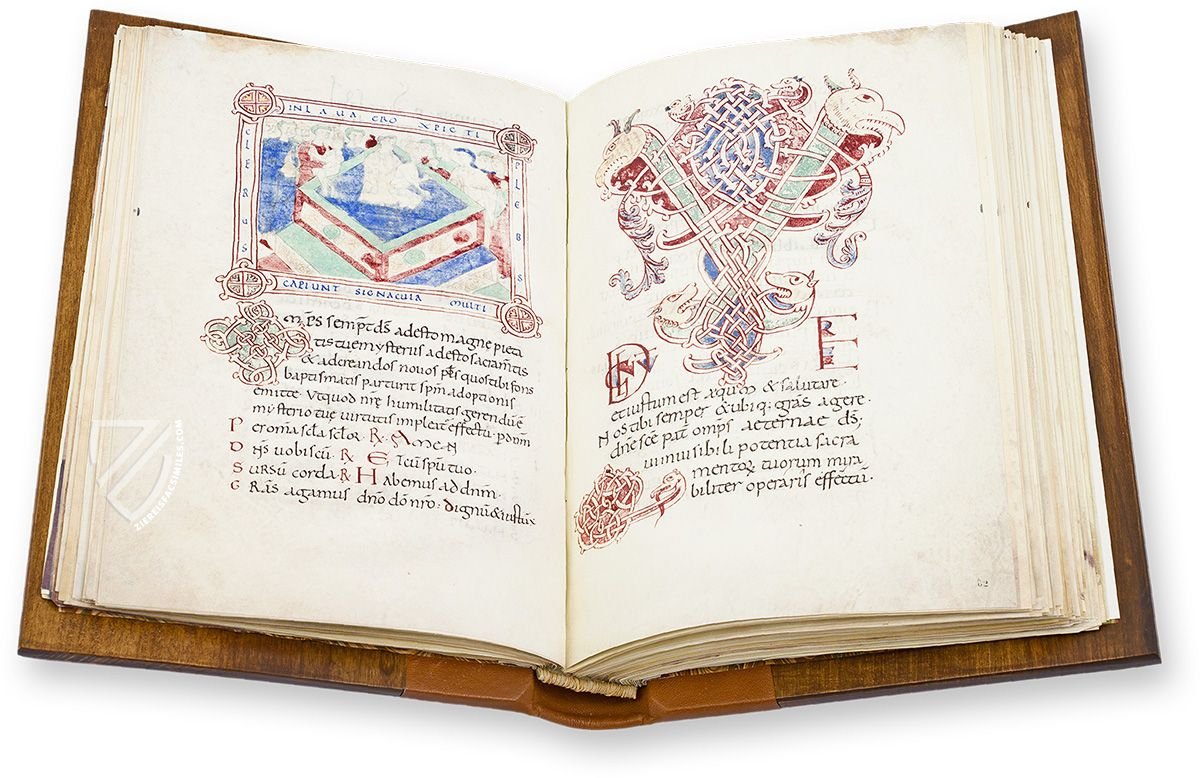 IN LAVACRO XPICTI
CLERUS
PLEBS
CAPIUNT SIGNACULA MULTI
mps sempt ds adesto magne pieta
tis tue mysteriis adesto sacramtis
& ad creandos novos pls quos tibi fons
baptismatis parturit spm adoptionis
emitte. Ut quod nre humilitatis gerendu e
mysterio tue virtutis impleat effectu. p dnm
P er omia scla sclor. R. Amen
D ns vobiscu. R Et cu spu tuo.
S ursu corda. R Habemus ad dnm.
G Ras agamus dno do nro. Dignu & iustu
VERE
D IGNU
et iustum est aequm & salutare.
Nos tibi semper & ubiq. gras agere.
dne sce pat omps aeternae ds;
ui invisibili potentia sacra
mentoru tuorum mira
biliter operaris effectu.
82
ZIEREIS FACSIMILES.COM